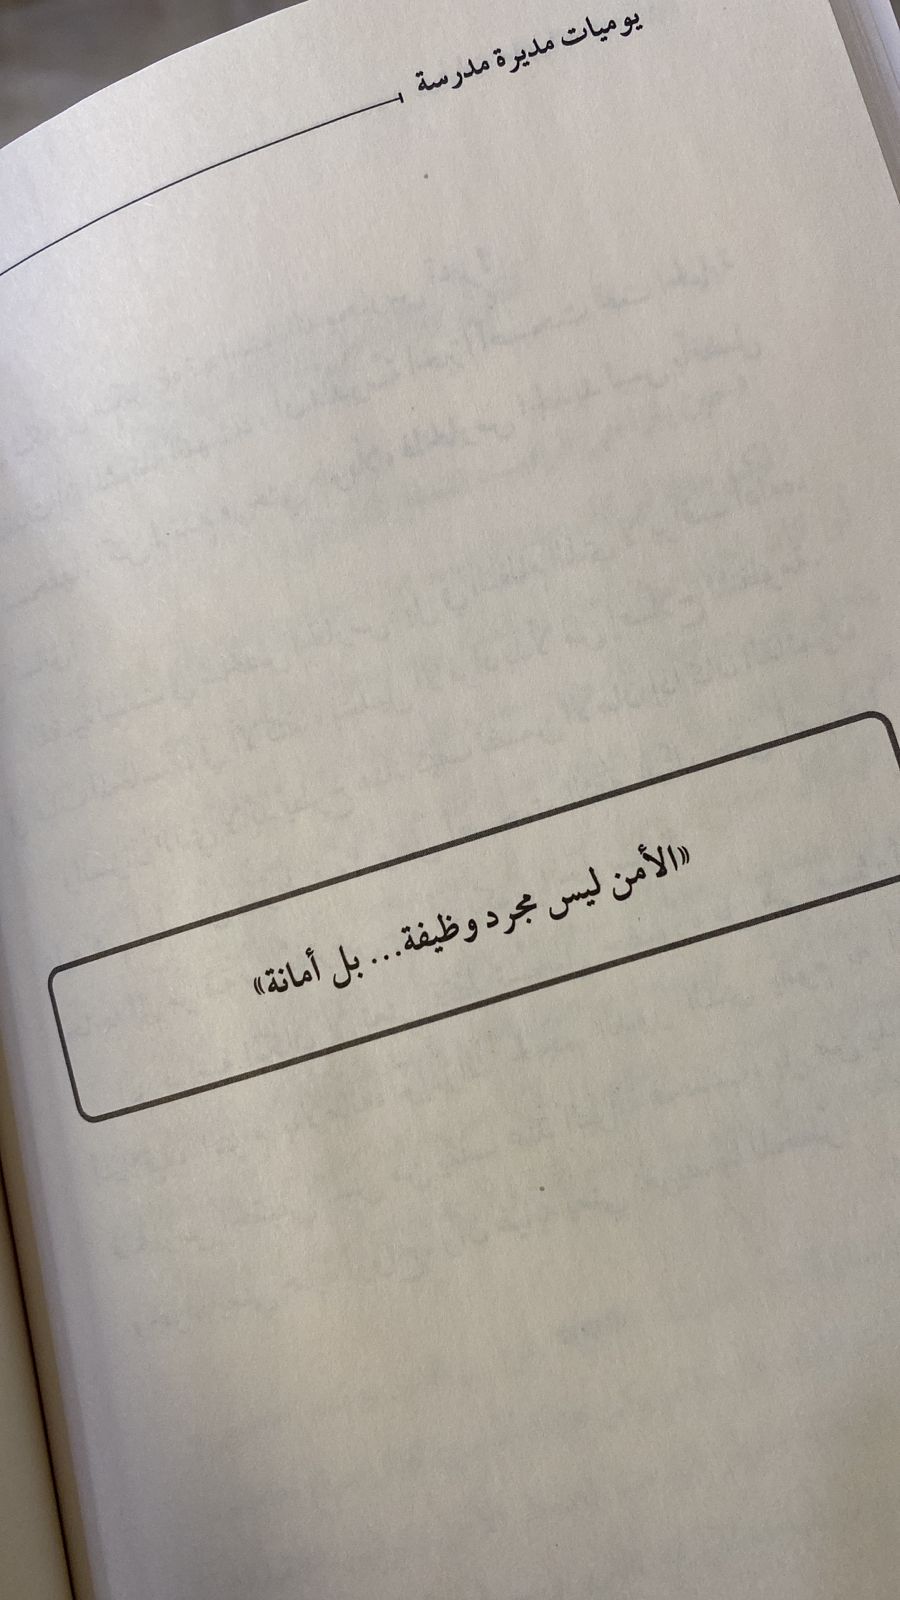 يوميات مديرة مدرسة
«الأمن ليس مجرد وظيفة... بل أمانة»